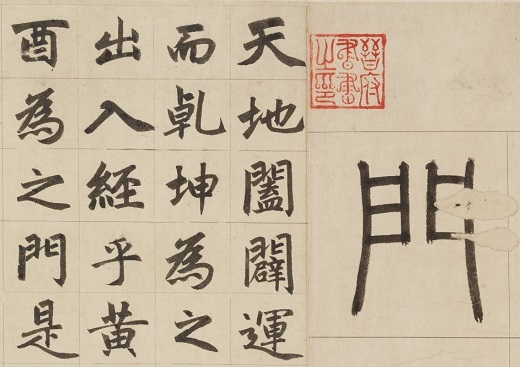 晉府書畫之印
門
天地闔闢運
而乹坤為之
出入經乎黃
酉為之門是